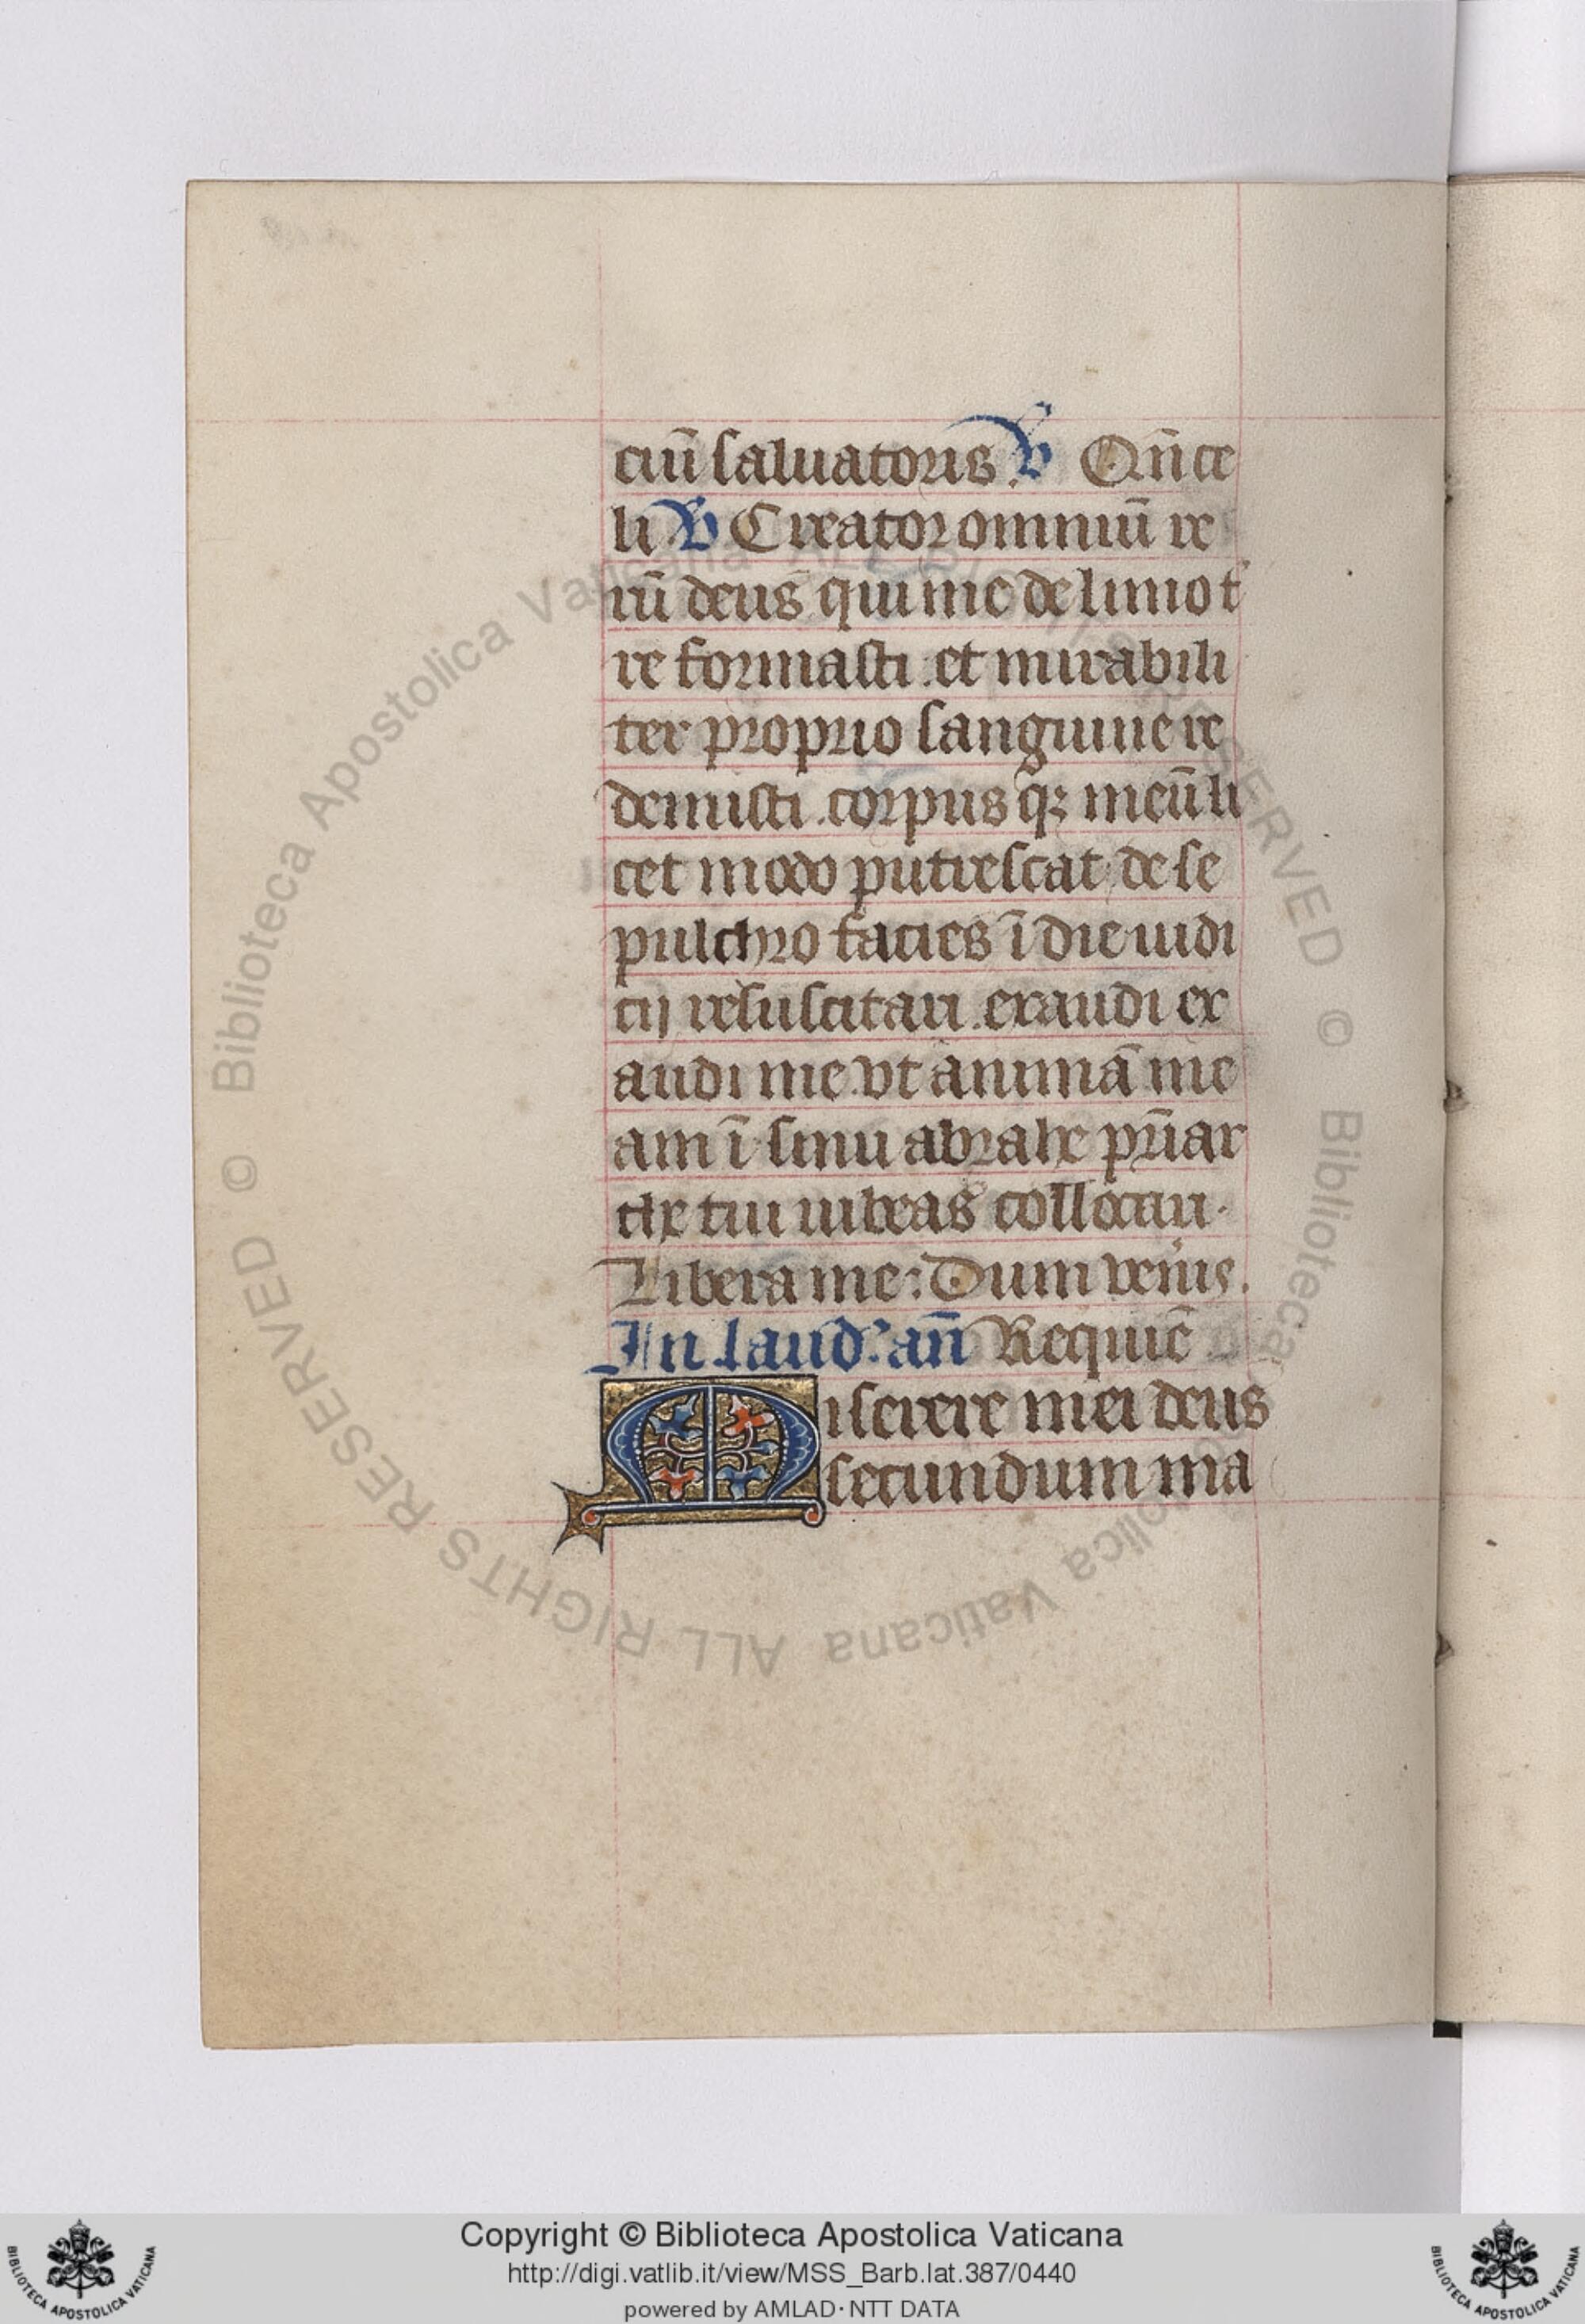 ciū saluatoris. V Qn̄ ce
li V Creator omniū re
rū deus qui me de limo t̓
re formasti. et mirabili
ter proprio sanguine re
demisti. corpus qꝫ meū li
cet modo putrescat de se
pulchro facies ī die iudi
cij resuscitari. exaudi ex
audi me. vt animā me
am ī sinu abrahe pr̄iar
che tui iubeas collocari.
Libera me: Dum ven̓is.
In laud̓. an̄ Requiē
Miserere mei deus
secundum ma
© Biblioteca Apostolica Vaticana ALL RIGHTS RESERVED © Biblioteca Apostolica Vaticana ALL RIGHTS RESERVED
Copyright © Biblioteca Apostolica Vaticana
http://digi.vatlib.it/view/MSS_Barb.lat.387/0440
powered by AMLAD · NTT DATA
BIBLIOTECA APOSTOLICA VATICANA
BIBLIOTECA APOSTOLICA VATICANA